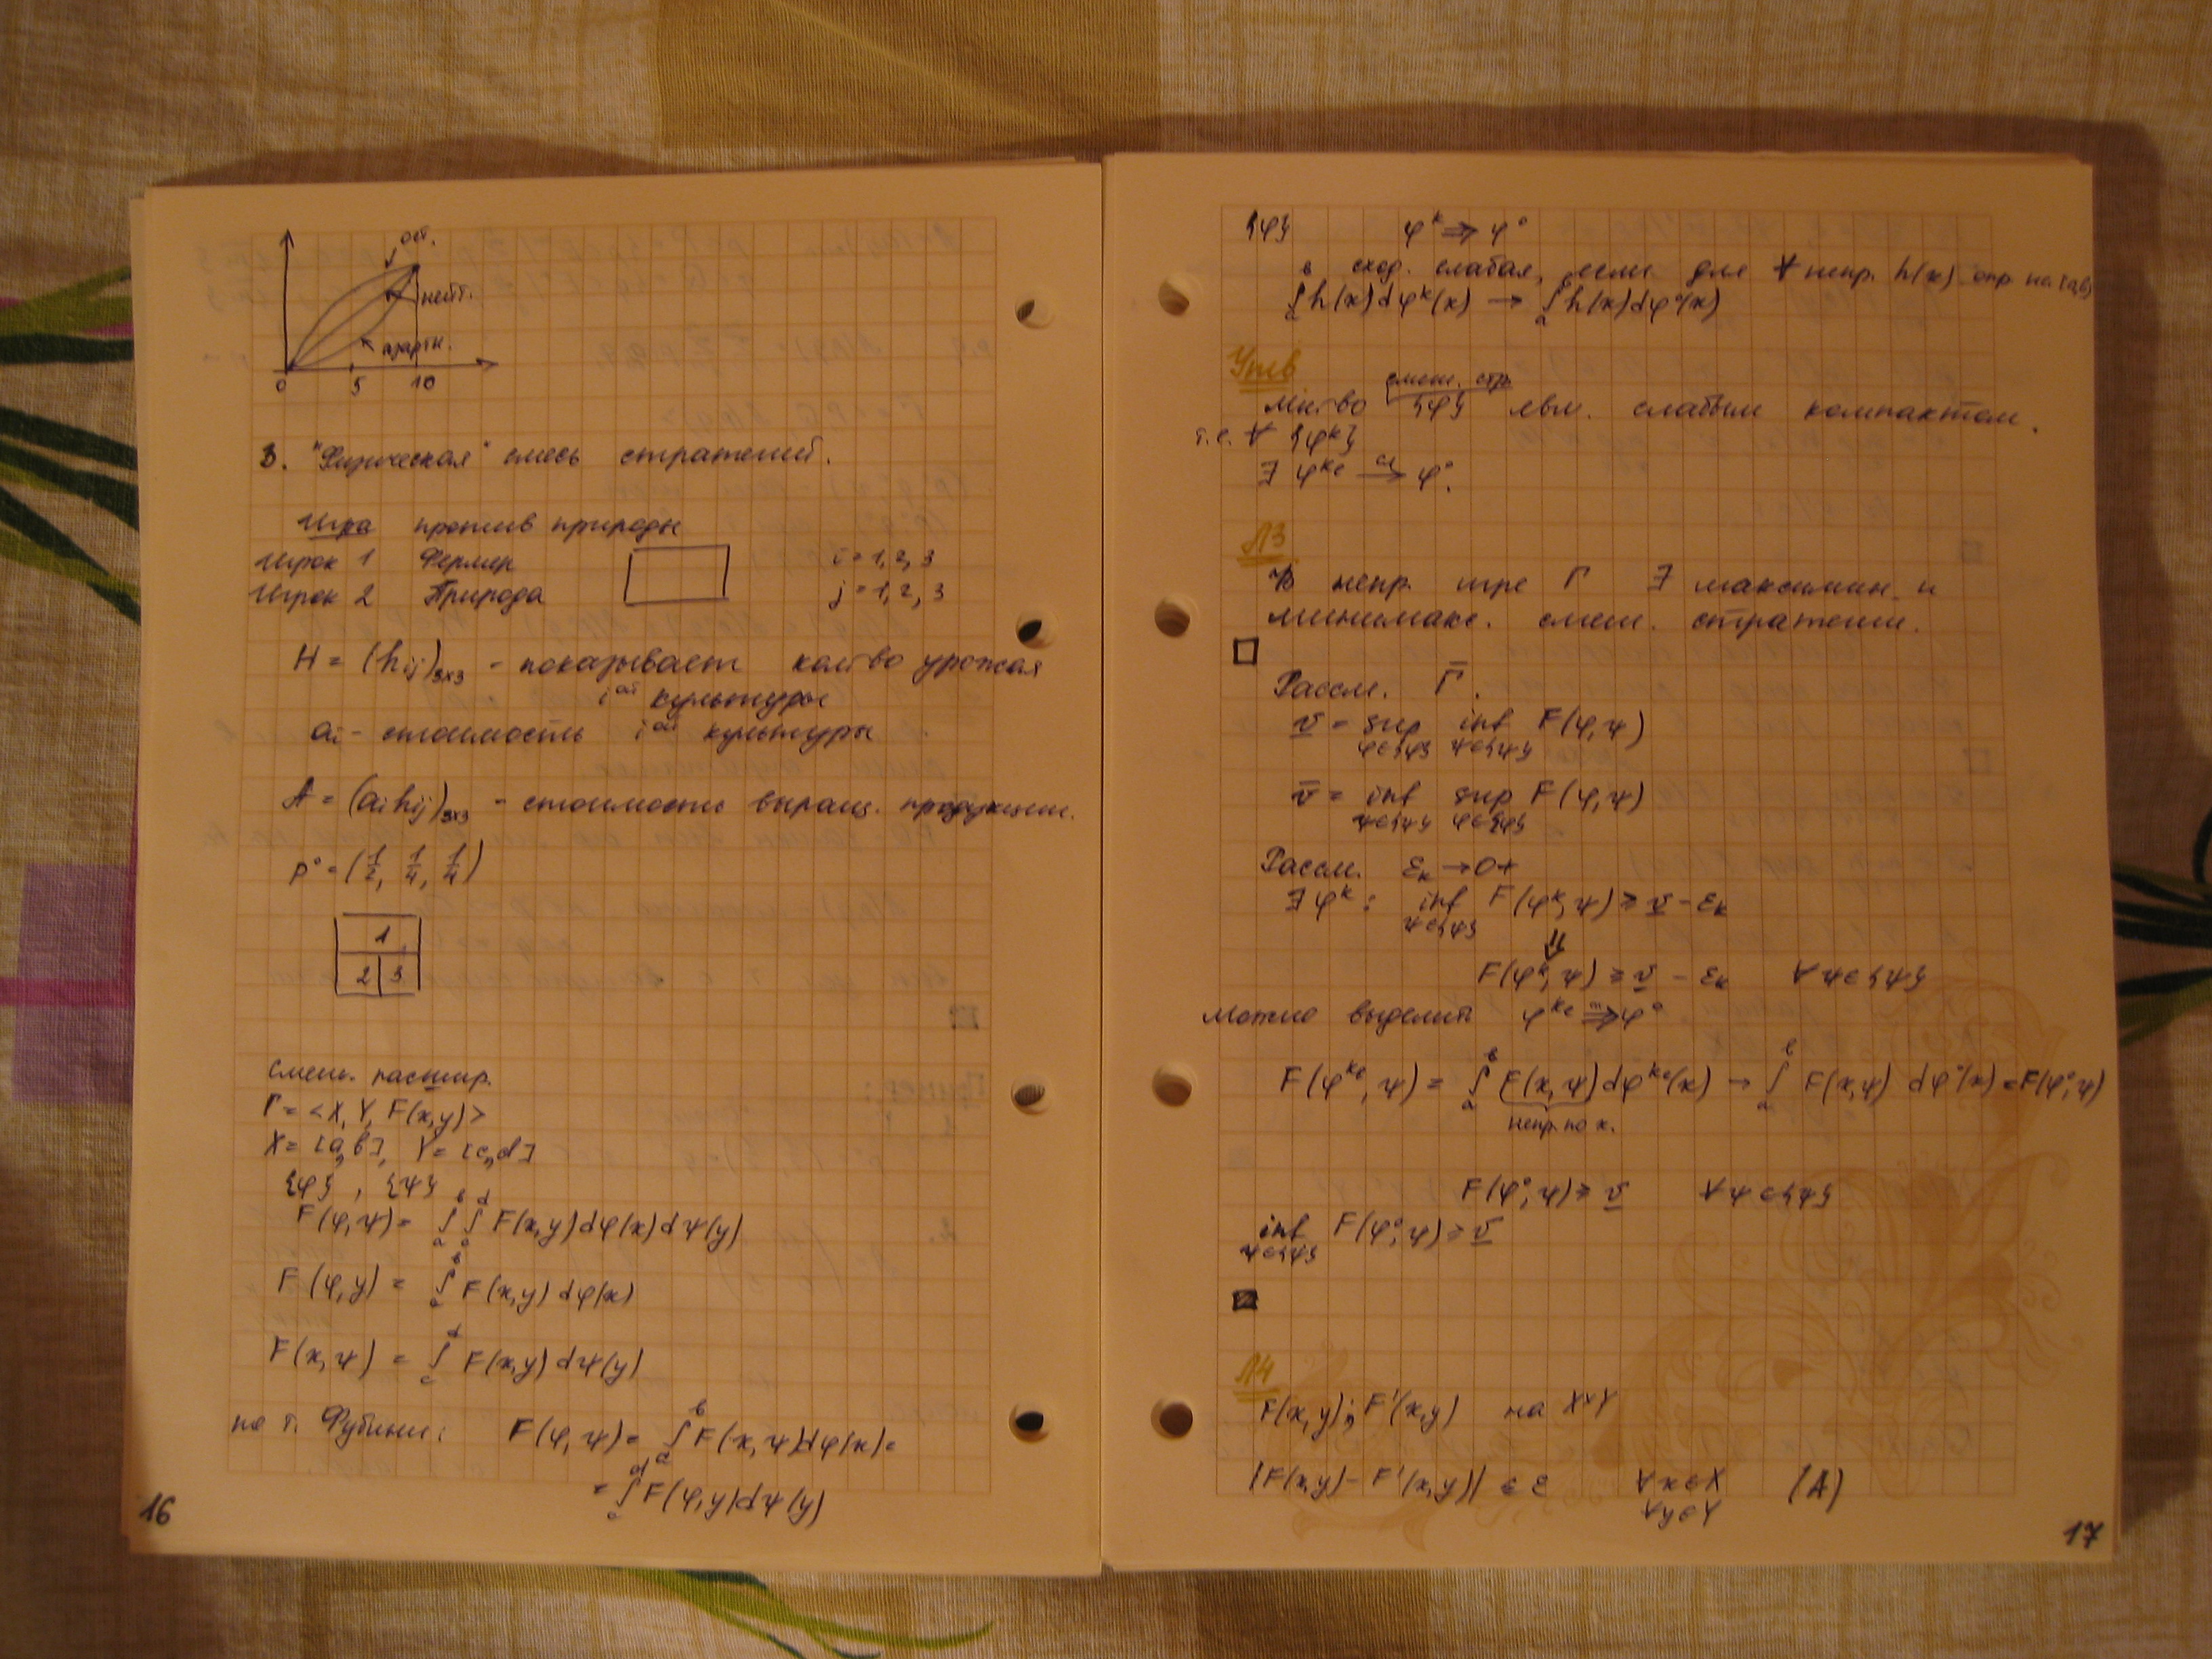 ост.
нейт.
азартн.
0 5 10
3. "Физическая" смесь стратегий.
Игра против природы
Игрок 1 Фермер i = 1, 2, 3
Игрок 2 Природа j = 1, 2, 3
H = (hij)3×3 - показывает кол-во урожая
i^ой культуры
ai - стоимость i^ой культуры
A = (ai hij)3×3 - стоимость выращ. продукции.
p° = (1/2, 1/4, 1/4)
1
2 3
Смеш. расшир.
Γ = <X, Y, F(x,y)>
X = [a,b], Y = [c,d]
{φ}, {ψ}
F(φ,ψ) = ∫_a^b ∫_c^d F(x,y) dφ(x) dψ(y)
F(φ,y) = ∫_a^b F(x,y) dφ(x)
F(x,ψ) = ∫_c^d F(x,y) dψ(y)
по т. Фубини: F(φ,ψ) = ∫_a^b F(x,ψ) dφ(x) =
= ∫_c^d F(φ,y) dψ(y)
16
{φ} φ^k ⇒ φ°
сход. слабая, если для ∀ непр. h(x) опр на [a,b]
∫_a^b h(x) dφ^k(x) → ∫_a^b h(x) dφ°(x)
Утв
смеш. стр.
мн-во {φ} явл. слабым компактом.
т.е. ∀ {φ^k}
∃ φ^kl →^сл φ°.
Л3
В непр. игре Γ ∃ максимин. и
минимакс. смеш. стратегии.
□
Рассм. Γ̅.
v̲ = sup_{φ∈{φ}} inf_{ψ∈{ψ}} F(φ,ψ)
v̅ = inf_{ψ∈{ψ}} sup_{φ∈{φ}} F(φ,ψ)
Рассм. ε_k → 0+
∃ φ^k : inf_{ψ∈{ψ}} F(φ^k,ψ) ≥ v̲ - ε_k
⇓
F(φ^k,ψ) ≥ v̲ - ε_k ∀ψ∈{ψ}
Можно выделить φ^kl ⇒ φ°
F(φ^kl,ψ) = ∫_a^b F(x,ψ) dφ^kl(x) → ∫_a^b F(x,ψ) dφ°(x) = F(φ°,ψ)
непр. по x.
F(φ°,ψ) ≥ v̲ ∀ψ∈{ψ}
inf_{ψ∈{ψ}} F(φ°,ψ) ≥ v̲
■
Л4
F(x,y); F'(x,y) на X×Y
|F(x,y) - F'(x,y)| ≤ ε ∀x∈X (A)
∀y∈Y
17